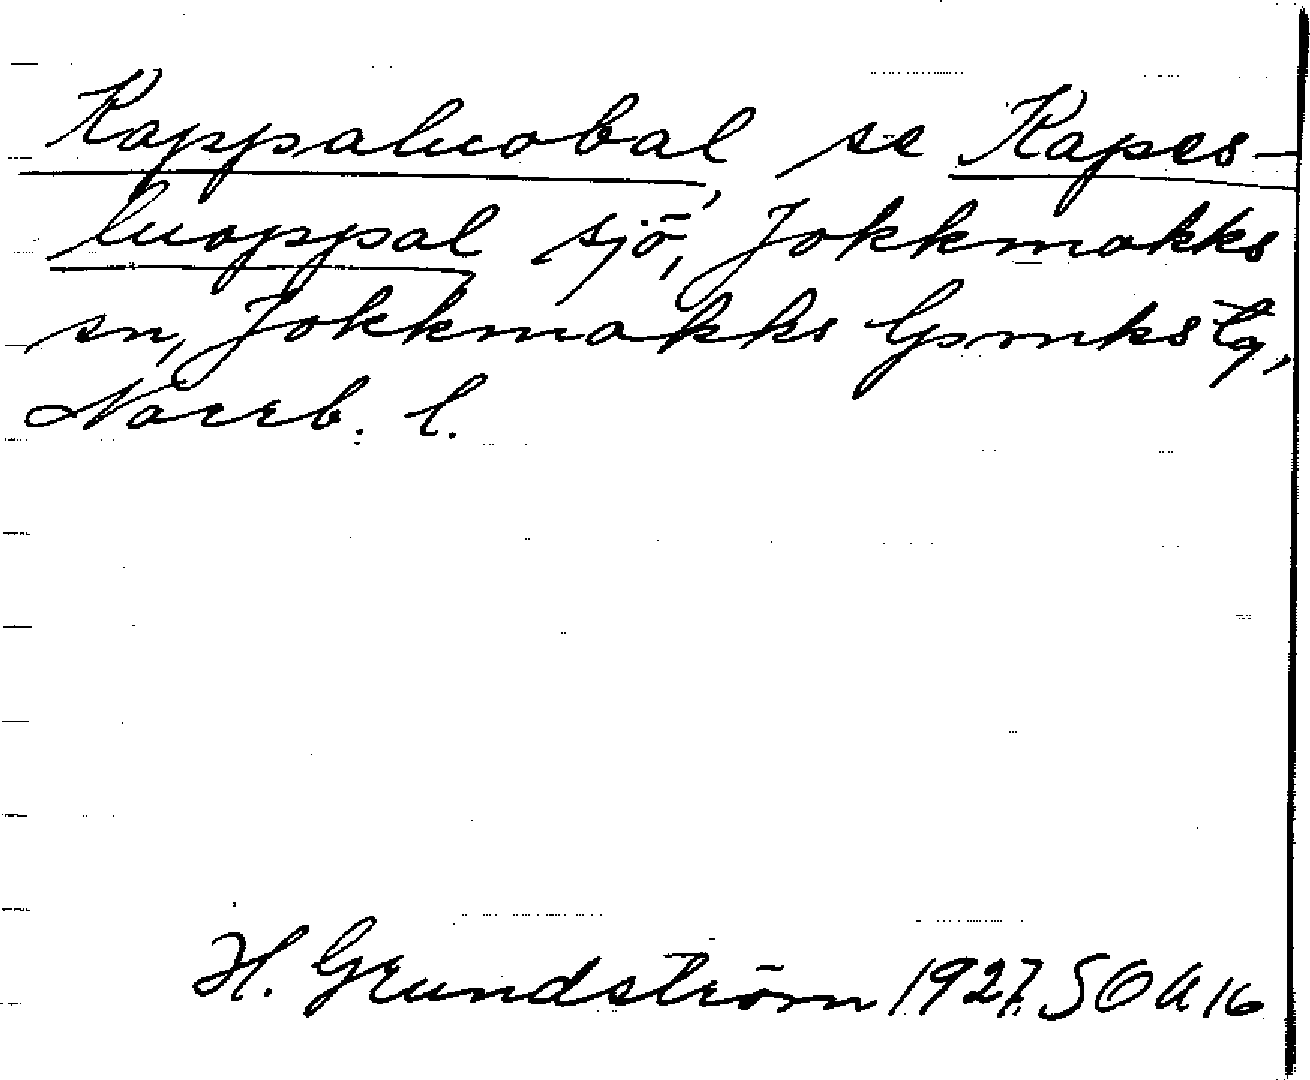 Kappaluobal, se Kapes-
luoppal sjö, Jokkmokks
sn, Jokkmokks lpmkstg,
Norrb. l.
H. Grundström 1927. SOA 16